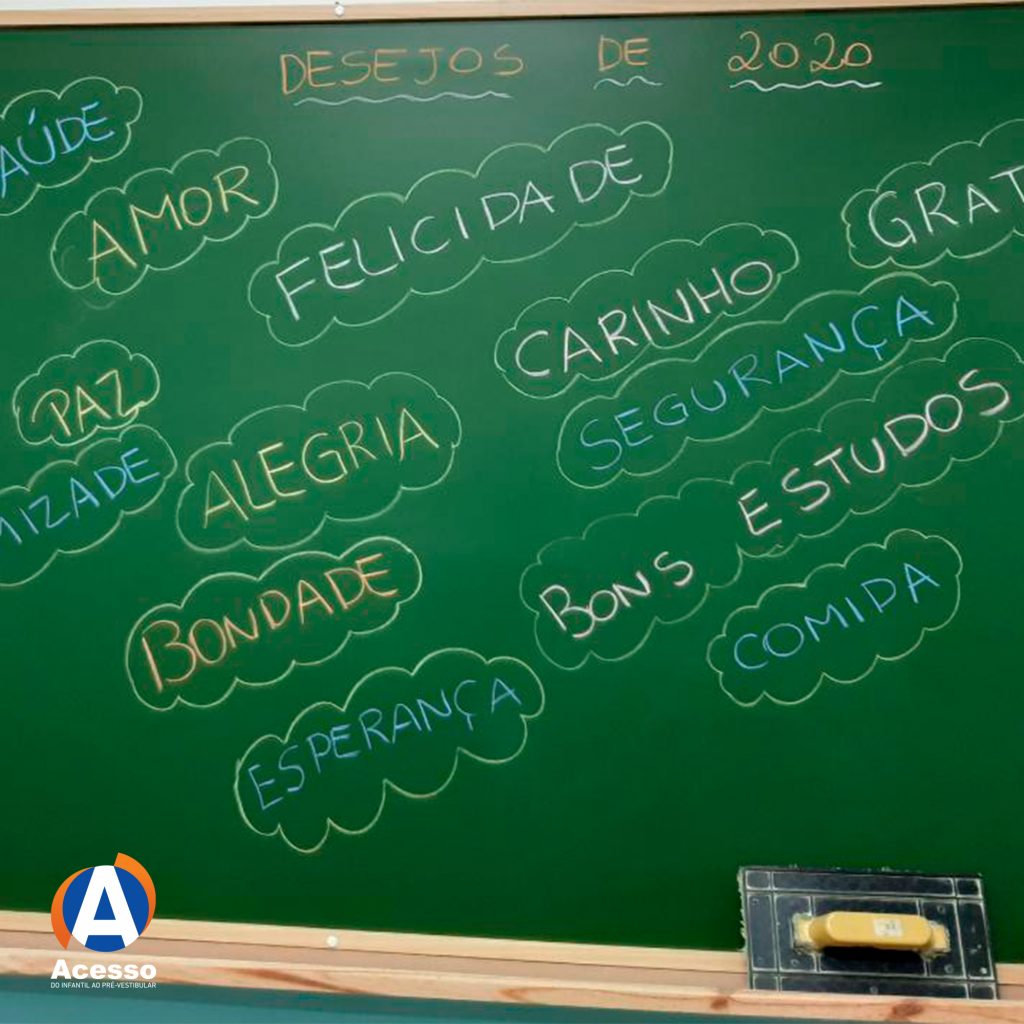 DESEJOS DE 2020
AÚDE
AMOR
FELICIDADE
GRAT
CARINHO
SEGURANÇA
PAZ
MIZADE
ALEGRIA
BONS ESTUDOS
BONDADE
COMIDA
ESPERANÇA
A
Acesso
DO INFANTIL AO PRÉ-VESTIBULAR